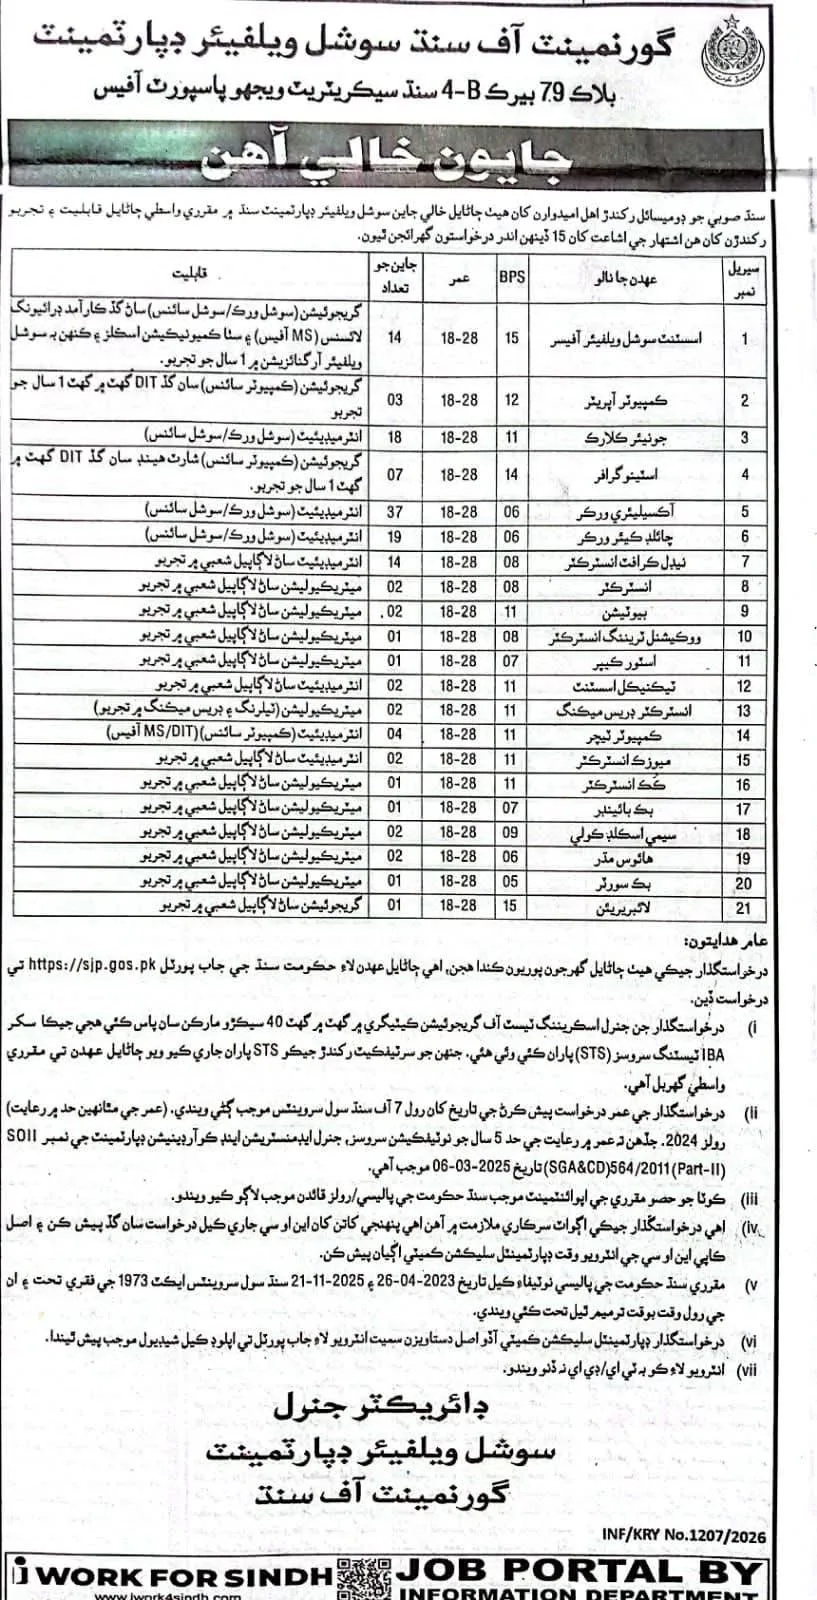 گورنمينٽ آف سنڌ سوشل ويلفيئر ڊپارٽمينٽ
بلاڪ 79 بيرڪ 4-B سنڌ سيڪريٽريٽ ويجھو پاسپورٽ آفيس
جايون خالي آهن
سنڌ صوبي جو ڊوميسائل رکندڙ اهل اميدوارن کان هيٺ ڄاڻايل خالي جاين سوشل ويلفيئر ڊپارٽمينٽ سنڌ ۾ مقرري واسطي ڄاڻايل قابليت ۽ تجربو
رکندڙن کان هن اشتهار جي اشاعت کان 15 ڏينهن اندر درخواستون گهرائجن ٿيون.
سيريل نمبر | عهدن جا نالو | BPS | عمر | جاين جو تعداد | قابليت
1 | اسسٽنٽ سوشل ويلفيئر آفيسر | 15 | 18-28 | 14 | گريجوئيشن (سوشل ورڪ/سوشل سائنس) ساڻ گڏ ڪارآمد ڊرائيونگ
لائسنس (MS آفيس) ۽ سٺا ڪميونيڪيشن اسڪلز ۽ ڪنهن بہ سوشل
ويلفيئر آرگنائزيشن ۾ 1 سال جو تجربو.
2 | ڪمپيوٽر آپريٽر | 12 | 18-28 | 03 | گريجوئيشن (ڪمپيوٽر سائنس) سان گڏ DIT گهٽ ۾ گهٽ 1 سال جو
تجربو
3 | جونيئر ڪلارڪ | 11 | 18-28 | 18 | انٽرميڊيئيٽ (سوشل ورڪ/سوشل سائنس)
4 | اسٽينوگرافر | 14 | 18-28 | 07 | گريجوئيشن (ڪمپيوٽر سائنس) شارٽ هينڊ سان گڏ DIT گهٽ ۾
گهٽ 1 سال جو تجربو.
5 | آڪسيليئري ورڪر | 06 | 18-28 | 37 | انٽرميڊيئيٽ (سوشل ورڪ/سوشل سائنس)
6 | چائلڊ ڪيئر ورڪر | 06 | 18-28 | 19 | انٽرميڊيئيٽ (سوشل ورڪ/سوشل سائنس)
7 | نيڊل ڪرافٽ انسٽرڪٽر | 08 | 18-28 | 14 | انٽرميڊيئيٽ ساڻ لاڳاپيل شعبي ۾ تجربو
8 | انسٽرڪٽر | 08 | 18-28 | 02 | ميٽريڪيوليشن ساڻ لاڳاپيل شعبي ۾ تجربو
9 | بيوٽيشن | 11 | 18-28 | 02 | ميٽريڪيوليشن ساڻ لاڳاپيل شعبي ۾ تجربو
10 | ووڪيشنل ٽريننگ انسٽرڪٽر | 08 | 18-28 | 01 | ميٽريڪيوليشن ساڻ لاڳاپيل شعبي ۾ تجربو
11 | اسٽور ڪيپر | 07 | 18-28 | 01 | ميٽريڪيوليشن ساڻ لاڳاپيل شعبي ۾ تجربو
12 | ٽيڪنيڪل اسسٽنٽ | 11 | 18-28 | 02 | انٽرميڊيئيٽ ساڻ لاڳاپيل شعبي ۾ تجربو
13 | انسٽرڪٽر ڊريس ميڪنگ | 11 | 18-28 | 02 | ميٽريڪيوليشن (ٽيلرنگ ۽ ڊريس ميڪنگ ۾ تجربو)
14 | ڪمپيوٽر ٽيچر | 11 | 18-28 | 04 | انٽرميڊيئيٽ (ڪمپيوٽر سائنس) (MS/DIT آفيس)
15 | ميوزڪ انسٽرڪٽر | 11 | 18-28 | 02 | انٽرميڊيئيٽ ساڻ لاڳاپيل شعبي ۾ تجربو
16 | ڪُڪ انسٽرڪٽر | 11 | 18-28 | 01 | ميٽريڪيوليشن ساڻ لاڳاپيل شعبي ۾ تجربو
17 | بڪ بائينڊر | 07 | 18-28 | 01 | ميٽريڪيوليشن ساڻ لاڳاپيل شعبي ۾ تجربو
18 | سيمي اسڪلڊ ڪولي | 09 | 18-28 | 02 | ميٽريڪيوليشن ساڻ لاڳاپيل شعبي ۾ تجربو
19 | هائوس مدر | 06 | 18-28 | 02 | ميٽريڪيوليشن ساڻ لاڳاپيل شعبي ۾ تجربو
20 | بڪ سورٽر | 05 | 18-28 | 01 | ميٽريڪيوليشن ساڻ لاڳاپيل شعبي ۾ تجربو
21 | لائبريريئن | 15 | 18-28 | 01 | گريجوئيشن ساڻ لاڳاپيل شعبي ۾ تجربو
عام هدايتون:
درخواستگذار جيڪي هيٺ ڄاڻايل گهرجون پوريون ڪندا هجن، اهي ڄاڻايل عهدن لاءِ حڪومت سنڌ جي جاب پورٽل https://sjp.gos.pk تي
درخواست ڏين.
(i درخواستگذار جن جنرل اسڪريننگ ٽيسٽ آف گريجوئيشن ڪيٽيگري ۾ گهٽ ۾ گهٽ 40 سيڪڙو مارڪن سان پاس ڪئي هجي جيڪا سکر
IBA ٽيسٽنگ سروسز (STS) پاران ڪئي وئي هئي، جنهن جو سرٽيفڪيٽ رکندڙ جيڪو STS پاران جاري ڪيو ويو ڄاڻايل عهدن تي مقرري
واسطي گهربل آهي.
(ii درخواستگذار جي عمر درخواست پيش ڪرڻ جي تاريخ کان رول 7 آف سنڌ سول سروينٽس موجب ڳڻي ويندي. (عمر جي مٿانهين حد ۾ رعايت)
رولز 2024. جڏهن تہ عمر ۾ رعايت جي حد 5 سال جو نوٽيفڪيشن سروسز، جنرل ايڊمنسٽريشن اينڊ ڪوآرڊينيشن ڊپارٽمينٽ جي نمبر SOII
(SGA&CD)564/2011(Part-II) تاريخ 2025-03-06 موجب آهي.
(iii ڪوٽا جو حصو مقرري جي اپوائنٽمينٽ موجب سنڌ حڪومت جي پاليسي/رولز قائدن موجب لاڳو ڪيو ويندو.
(iv اهي درخواستگذار جيڪي اڳواٽ سرڪاري ملازمت ۾ آهن اهي پنهنجي کاتن کان اين او سي جاري ڪيل درخواست سان گڏ پيش ڪن ۽ اصل
ڪاپي اين او سي جي انٽرويو وقت ڊپارٽمينٽل سليڪشن ڪميٽي اڳيان پيش ڪن.
(v مقرري سنڌ حڪومت جي پاليسي نوٽيفاءِ ڪيل تاريخ 2023-04-26 ۽ 2025-11-21 سنڌ سول سروينٽس ايڪٽ 1973 جي فقري تحت ۽ ان
جي رول وقت بوقت ترميم ٿيل تحت ڪئي ويندي.
(vi درخواستگذار ڊپارٽمينٽل سليڪشن ڪميٽي آڏو اصل دستاويزن سميت انٽرويو لاءِ جاب پورٽل تي اپلوڊ ڪيل شيڊيول موجب پيش ٿيندا.
(vii انٽرويو لاءِ ڪو بہ ٽي اي/ڊي اي نہ ڏنو ويندو.
ڊائريڪٽر جنرل
سوشل ويلفيئر ڊپارٽمينٽ
گورنمينٽ آف سنڌ
INF/KRY No.1207/2026
i WORK FOR SINDH
www.iwork4sindh.com
JOB PORTAL BY
INFORMATION DEPARTMENT